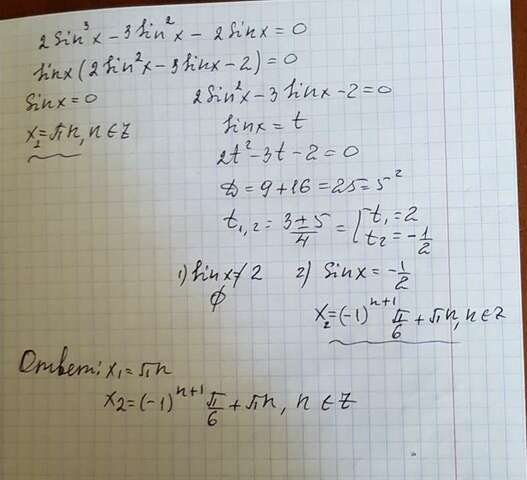 2sin³x - 3sin²x - 2sinx = 0
sinx(2sin²x - 3sinx - 2) = 0
sinx = 0
x₂ = πn, n ∈ Z
2sin²x - 3sinx - 2 = 0
sinx = t
2t² - 3t - 2 = 0
D = 9 + 16 = 25 = 5²
t₁,₂ = (3 ± 5)/4 = [t₁ = 2
t₂ = -1/2
1) sinx ≠ 2
∅
2) sinx = -1/2
x₂ = (-1)ⁿ⁺¹ π/6 + πn, n ∈ Z
Ответ: x₁ = πn
x₂ = (-1)ⁿ⁺¹ π/6 + πn, n ∈ Z